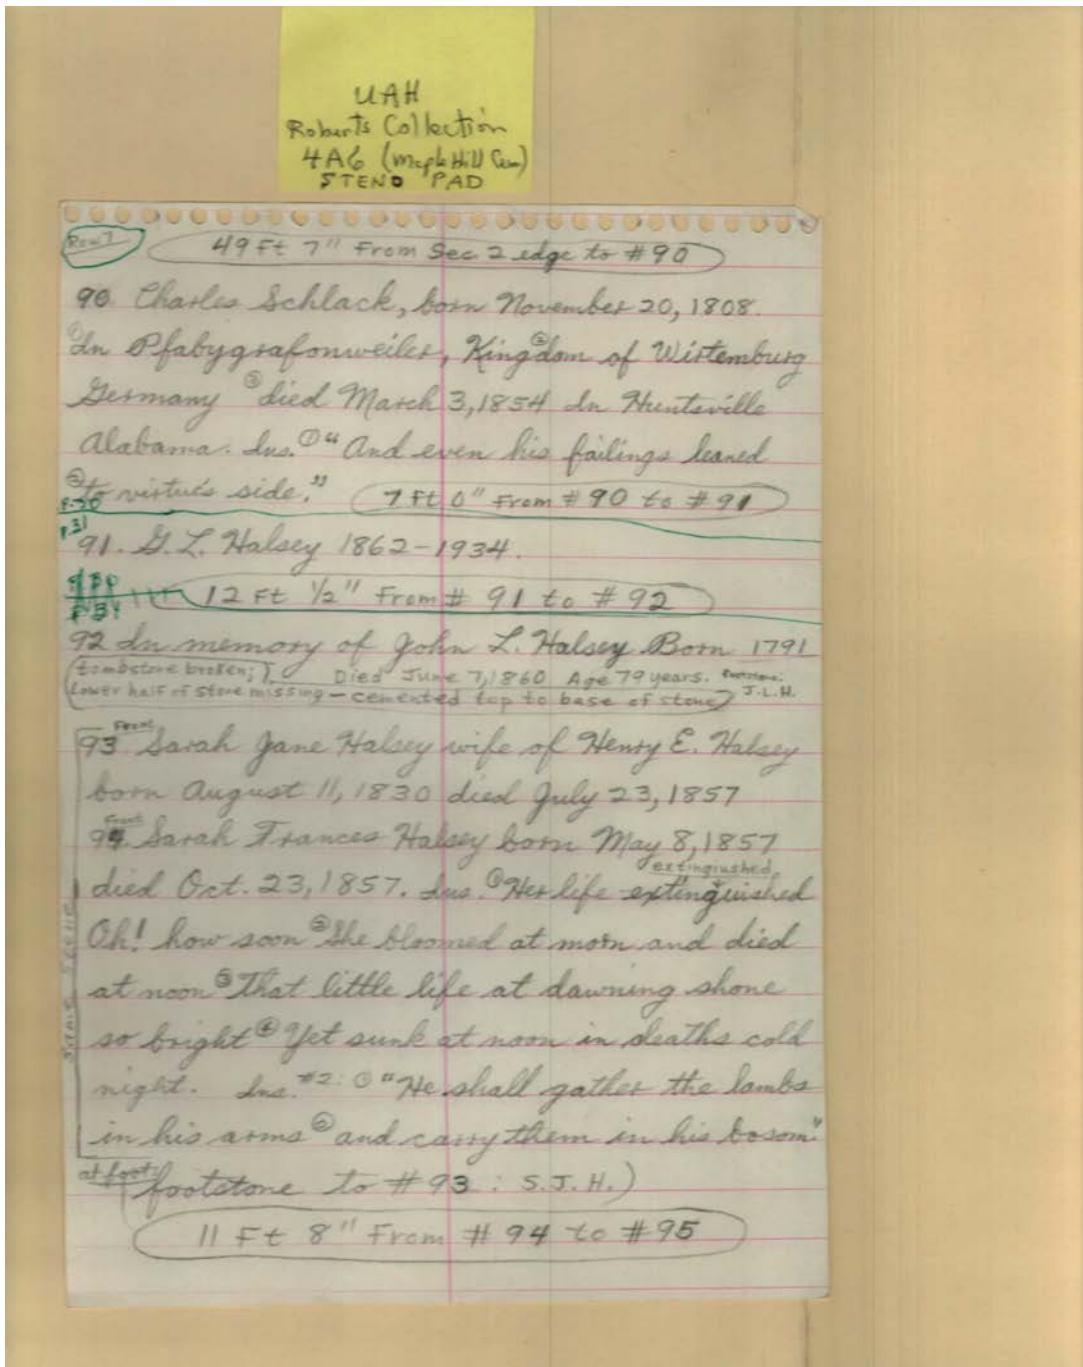 UAH
Roberts Collection
4A6 (Maple Hill Cem)
STENO PAD
Row 7
49 Ft 7" From Sec 2 edge to #90
90 Charles Schlack, born November 20, 1808.
① In Pfabygrafonweiler, King② dom of Wirtemburg
Germany ③ died March 3, 1854 In Huntsville
Alabama. Ins. ① “And even his failings leaned
② to virtue's side.” 7 ft 0" From #90 to #91
P.30
P.31
91. G. L. Halsey 1862-1934.
12 Ft ½" From # 91 to # 92
92 In memory of John L. Halsey Born 1791
(tombstone broken;) Died June 7, 1860 Age 79 years. Footstone:
Lower half of stone missing - cemented top to base of stone) J.L.H.
Front
93 Sarah Jane Halsey wife of Henry E. Halsey
born August 11, 1830 died July 23, 1857
Front
94. Sarah Frances Halsey born May 8, 1857
extingiushed
died Oct. 23, 1857. Ins. ① Her life extinguished
Oh! how soon ② She bloomed at morn and died
at noon ③ That little life at dawning shone
so bright ④ Yet sunk at noon in deaths cold
night. Ins. #2: ① “He shall gather the lambs
in his arms ② and carry them in his bosom”
same stone
at foot:
footstone to #93 : S.J.H.)
11 Ft 8" From # 94 to #95